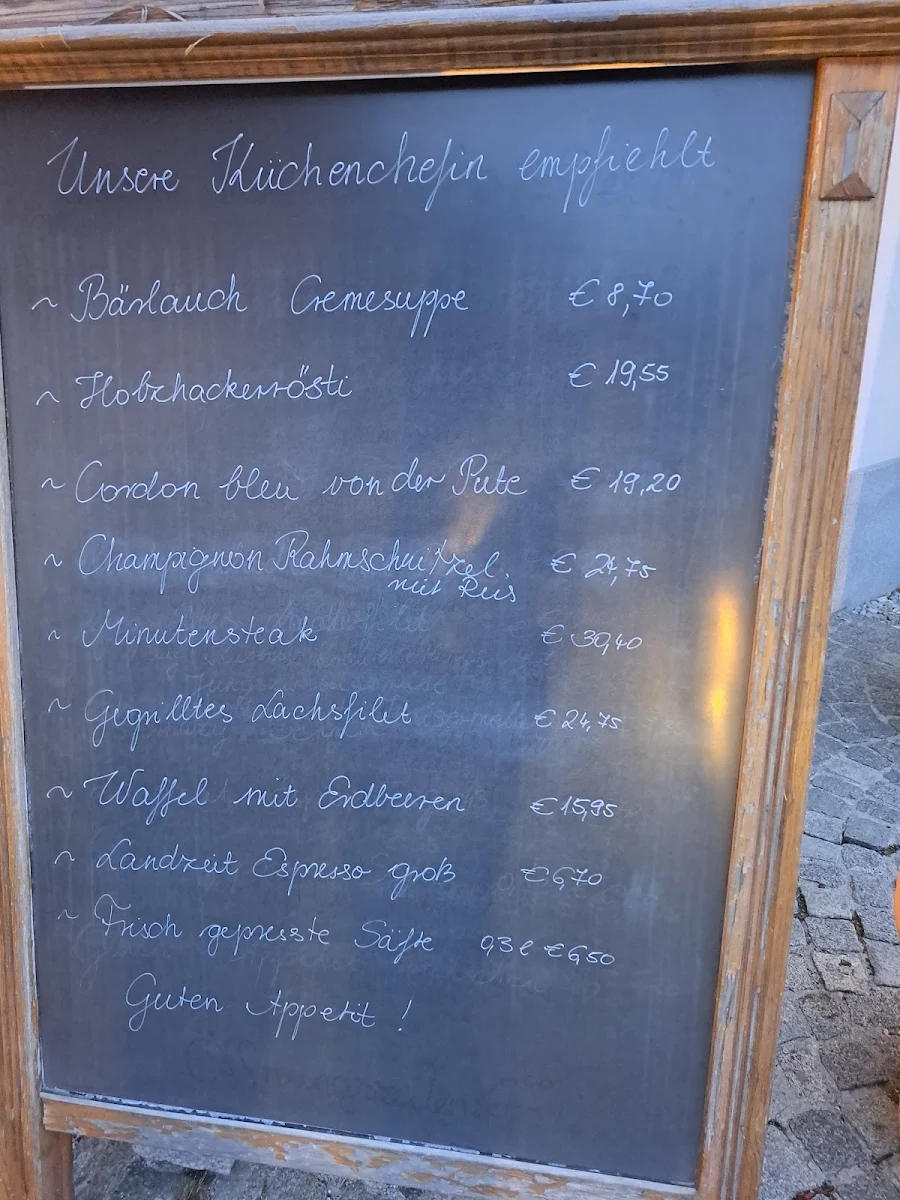 Unsere Küchenchefin empfiehlt
~ Bärlauch Cremesuppe € 8,70
~ Holzhackerrösti € 19,55
~ Cordon bleu von der Pute € 19,20
~ Champignon Rahmschnitzel € 24,75
mit Reis
~ Minutensteak € 30,40
~ Gegrilltes Lachsfilet € 24,75
~ Waffel mit Erdbeeren € 15,95
~ Landzeit Espresso groß € 6,70
~ Frisch gepresste Säfte 0,3 l € 6,50
Guten Appetit !